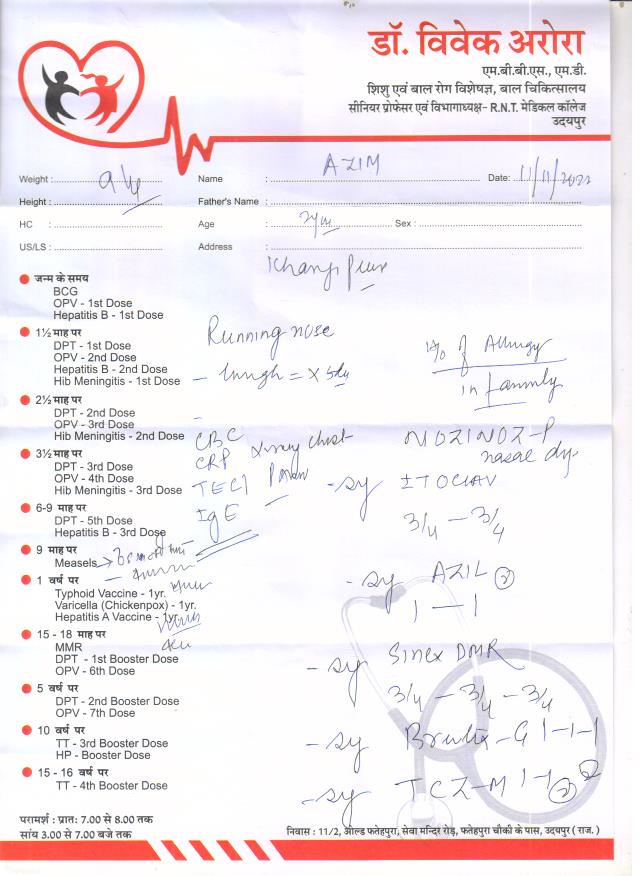 डॉ. विवेक अरोरा
एम.बी.बी.एस., एम.डी.
शिशु एवं बाल रोग विशेषज्ञ, बाल चिकित्सालय
सीनियर प्रोफेसर एवं विभागाध्यक्ष- R.N.T. मेडिकल कॉलेज
उदयपुर
Weight : Name : AZIM Date: 11/11/2022
Height : Father's Name :
HC : Age : Sex :
US/LS : Address :
जन्म के समय
BCG
OPV - 1st Dose
Hepatitis B - 1st Dose
1½ माह पर
DPT - 1st Dose
OPV - 2nd Dose
Hepatitis B - 2nd Dose
Hib Meningitis - 1st Dose
Running nose
of Allergy
in family
2½ माह पर
DPT - 2nd Dose
OPV - 3rd Dose
Hib Meningitis - 2nd Dose
CBC
X-ray chest
CRP
NOZINOZ-P
nasal
3½ माह पर
DPT - 3rd Dose
OPV - 4th Dose
Hib Meningitis - 3rd Dose
- sy ITOCLAV
3/4 - 3/4
6-9 माह पर
DPT - 5th Dose
Hepatitis B - 3rd Dose
IgE
9 माह पर
Measels
1 वर्ष पर
Typhoid Vaccine - 1yr.
Varicella (Chickenpox) - 1yr.
Hepatitis A Vaccine - 1yr.
- sy AZIL
1 - 1
15 - 18 माह पर
MMR
DPT - 1st Booster Dose
OPV - 6th Dose
- sy Sinex DMR
3/4 - 3/4 - 3/4
5 वर्ष पर
DPT - 2nd Booster Dose
OPV - 7th Dose
10 वर्ष पर
TT - 3rd Booster Dose
HP - Booster Dose
- sy 1-1-1
15 - 16 वर्ष पर
TT - 4th Booster Dose
- sy TCZ-M
परामर्श : प्रातः 7.00 से 8.00 तक
सांय 3.00 से 7.00 बजे तक
निवास : 11/2, ओल्ड फतेहपुरा, सेवा मन्दिर रोड़, फतेहपुरा चौकी के पास, उदयपुर ( राज. )